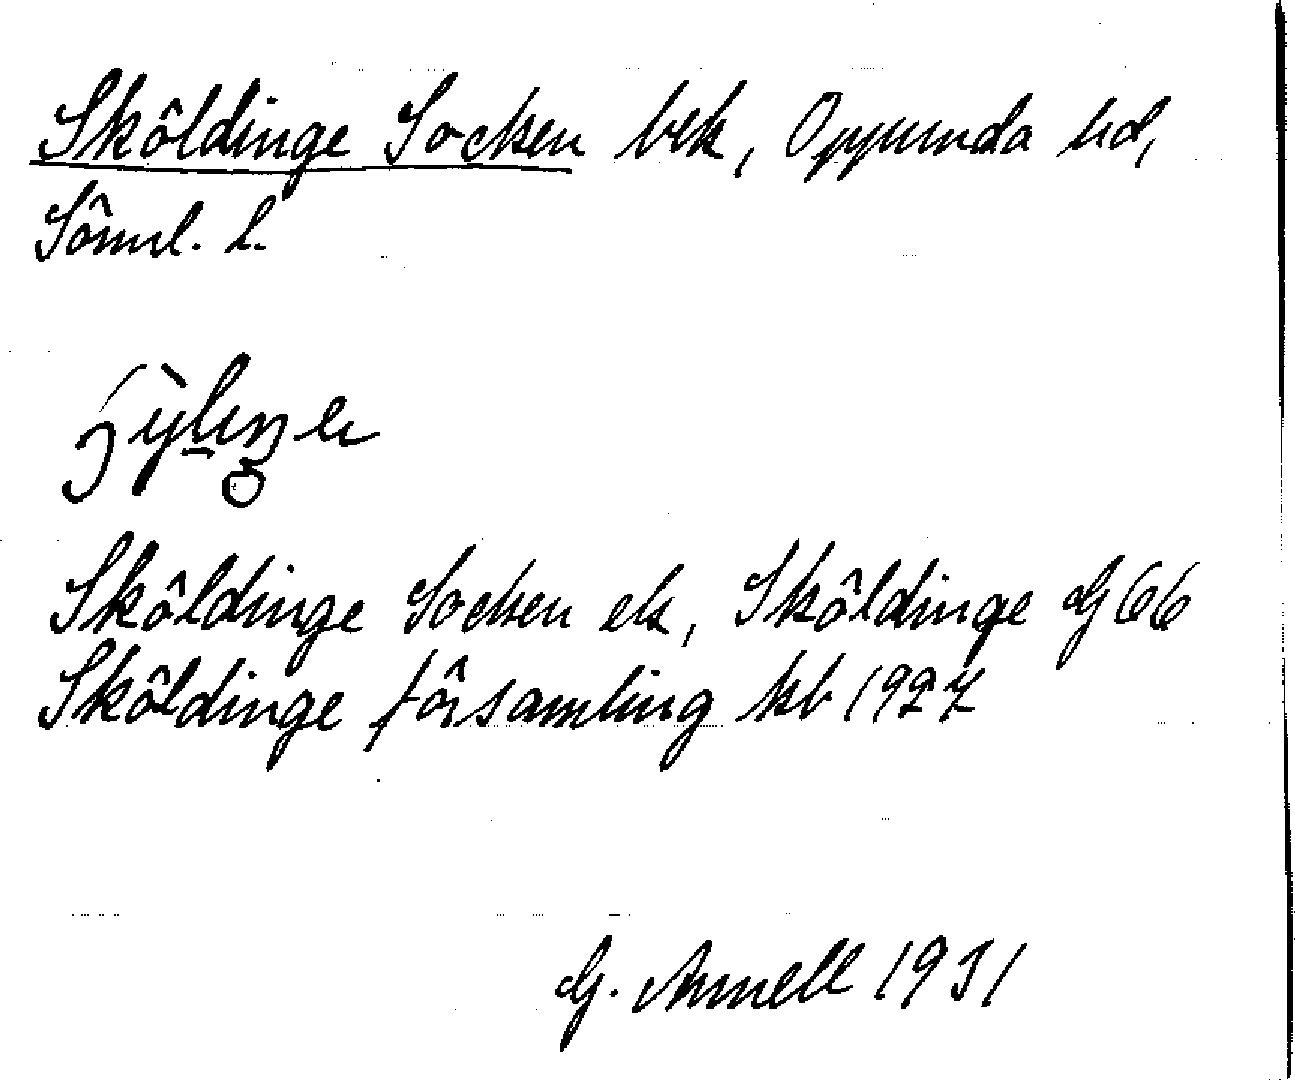 Sköldinge Socken bek, Oppunda hd,
Söml. l.
Sköldinge Socken ek, Sköldinge G66
Sköldinge församling kb 1927
G. Annell 1931